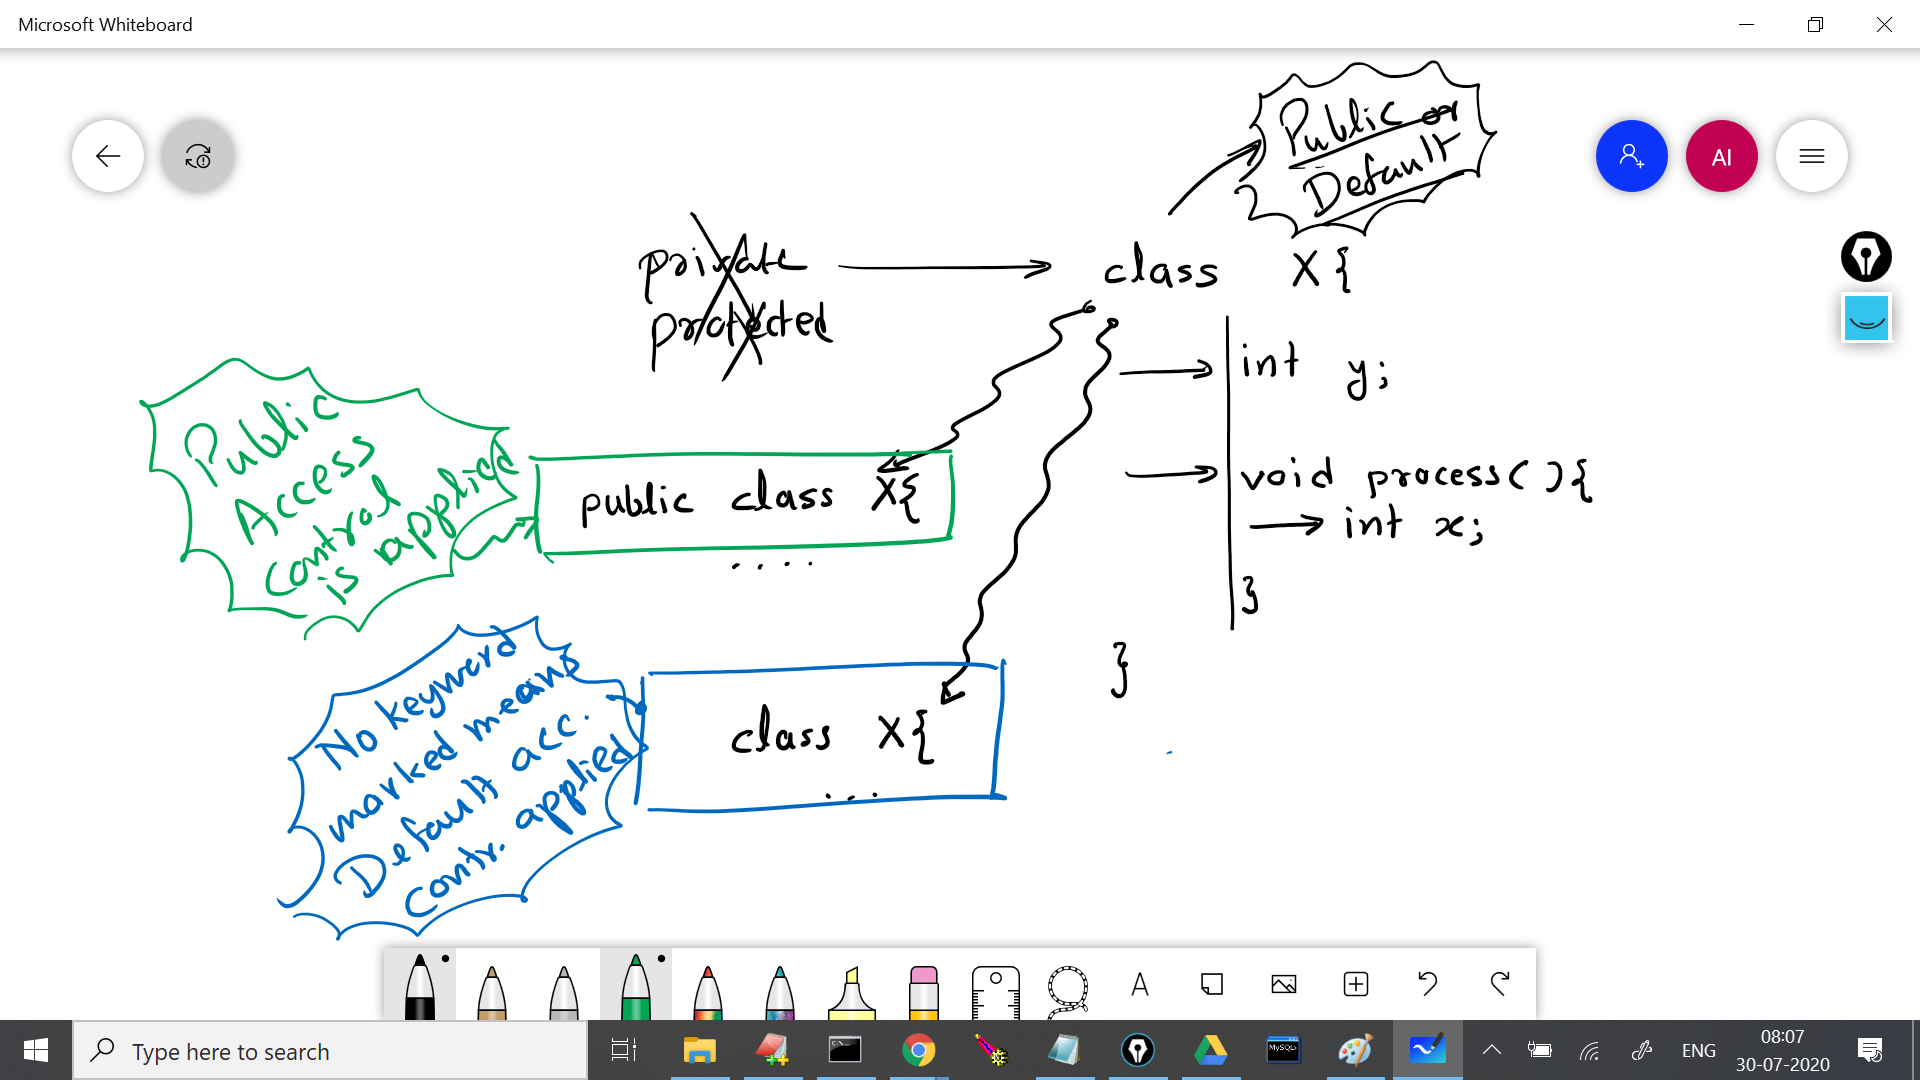 Microsoft Whiteboard
Public or
Default
AI
private
protected
class X{
int y;
void process( ){
int x;
}
}
Public
Access
control
is applied
public class X{
....
No keyword
marked means
Default acc.
contr. applied
class X{
...
A
Type here to search
C:\
MySQL
ENG
08:07
30-07-2020